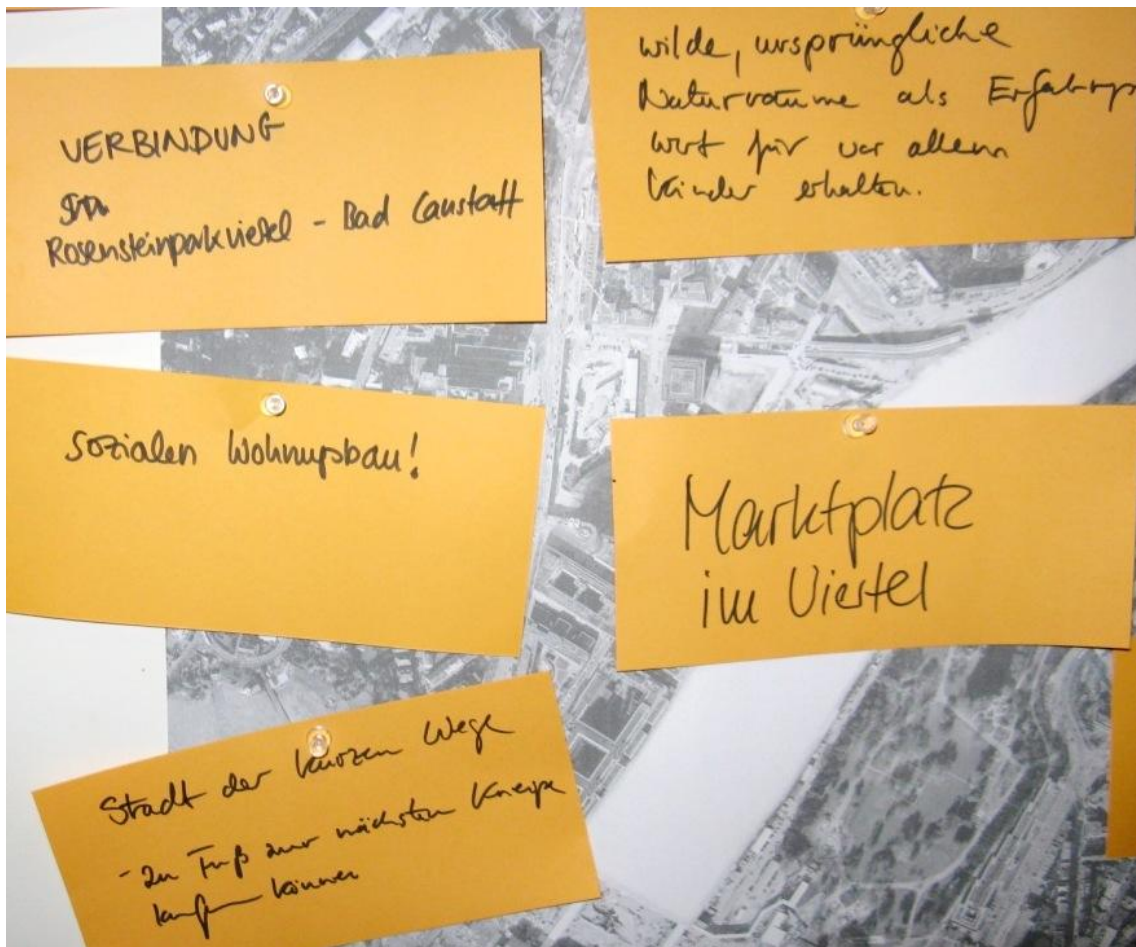 VERBINDUNG
Rosensteinparkviertel - Bad Canstatt
wilde, ursprüngliche
Naturräume als Erfahrungs
wert für vor allem
Kinder erhalten.
sozialen Wohnungsbau!
Marktplatz
im Viertel
Stadt der kurzen Wege
- zu Fuß zur nächsten Kneipe
laufen können